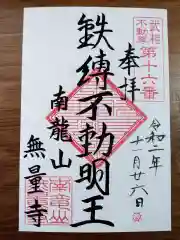 武相
不動尊
第十六番
奉拝
鉄縛不動明王
南龍山
無量寺
令和二年
十一月廿六日